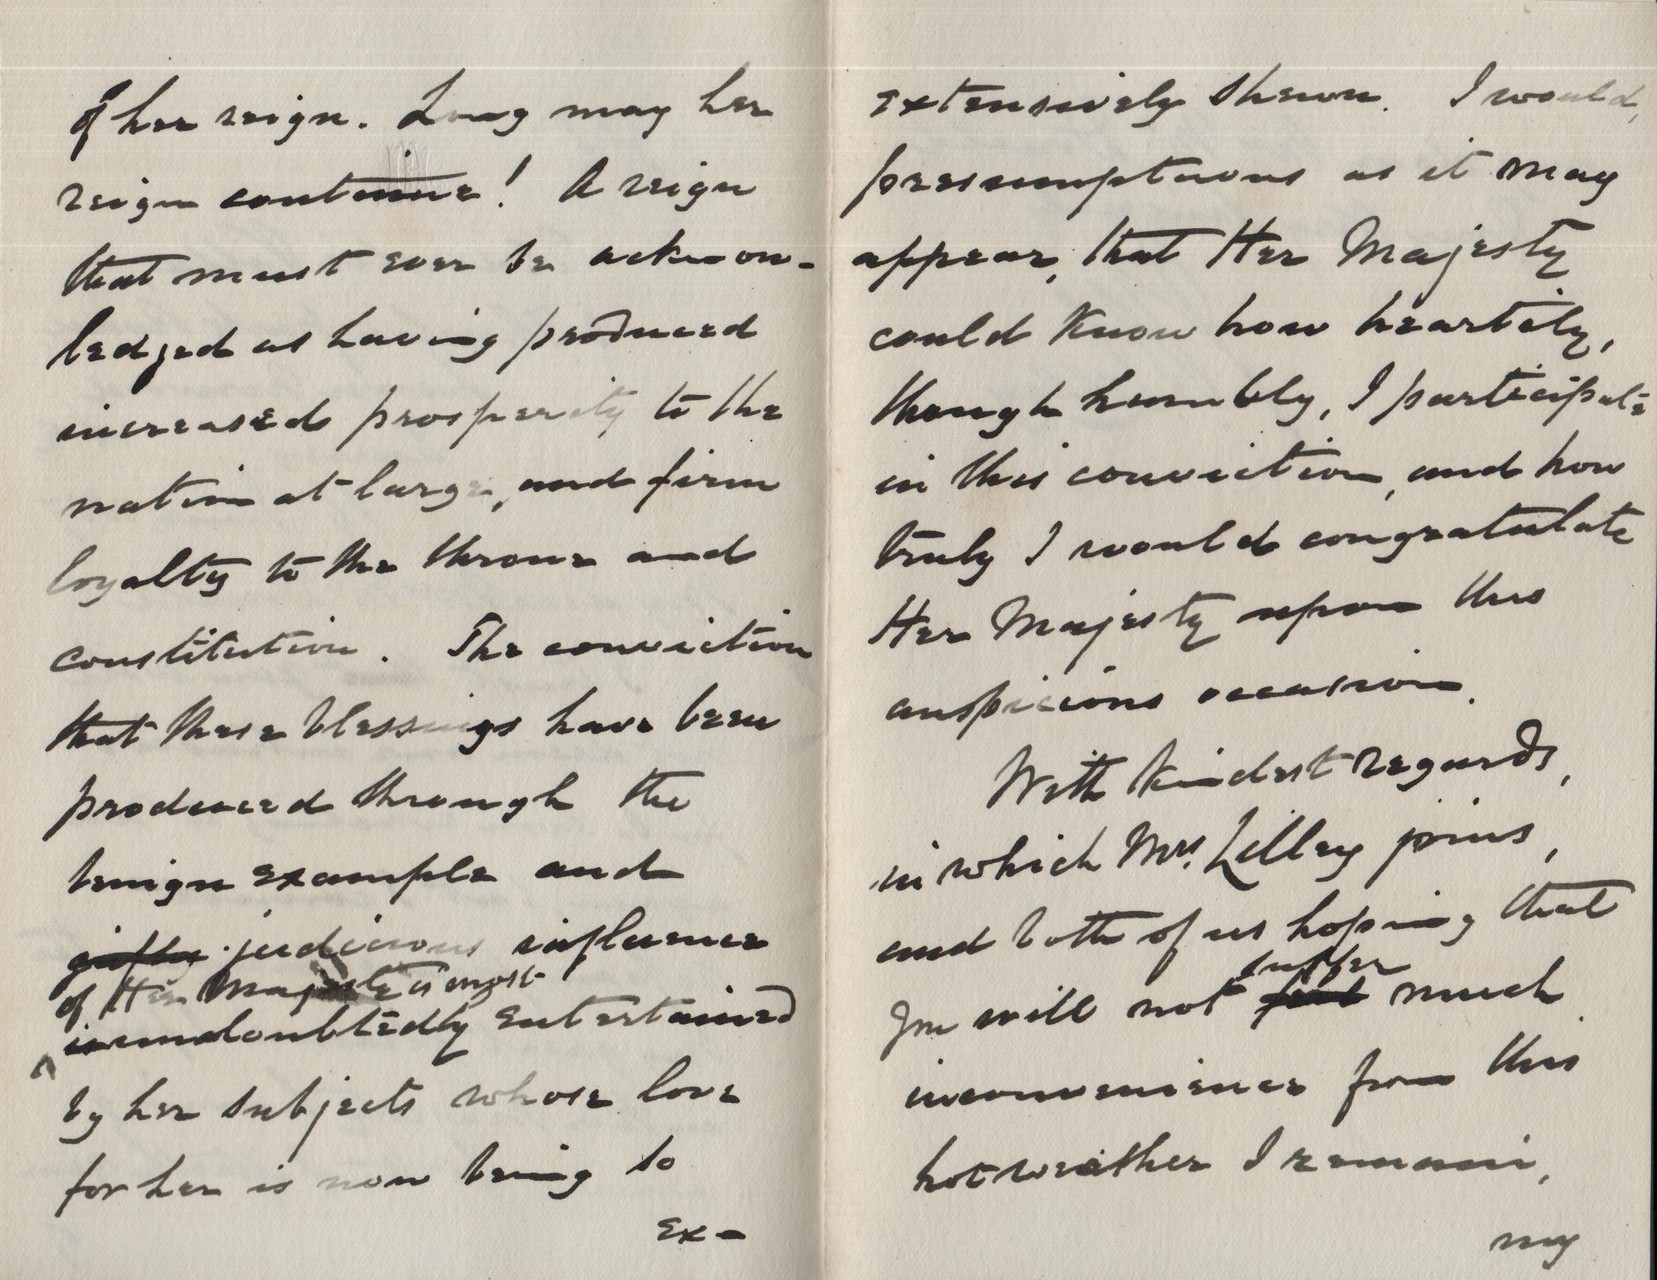 of her reign. Long may her
reign continue! A reign
that must ever be acknow-
ledged as having produced
increased prosperity to the
nation at large, and firm
loyalty to the throne and
constitution. The conviction
that these blessings have been
produced through the
benign example and
judicious influence
of Her Majesty is most
undoubtedly entertained
by her subjects whose love
for her is now being so
ex-
extensively shewn. I would,
presumptuous as it may
appear, that Her Majesty
could know how heartily,
though humbly, I participate
in this conviction, and how
truly I would congratulate
Her Majesty upon this
auspicious occasion.
With kindest regards,
in which Mrs. Lilley joins,
and both of us hoping that
suffer
you will not feel much
inconvenience from this
hot weather I remain,
my